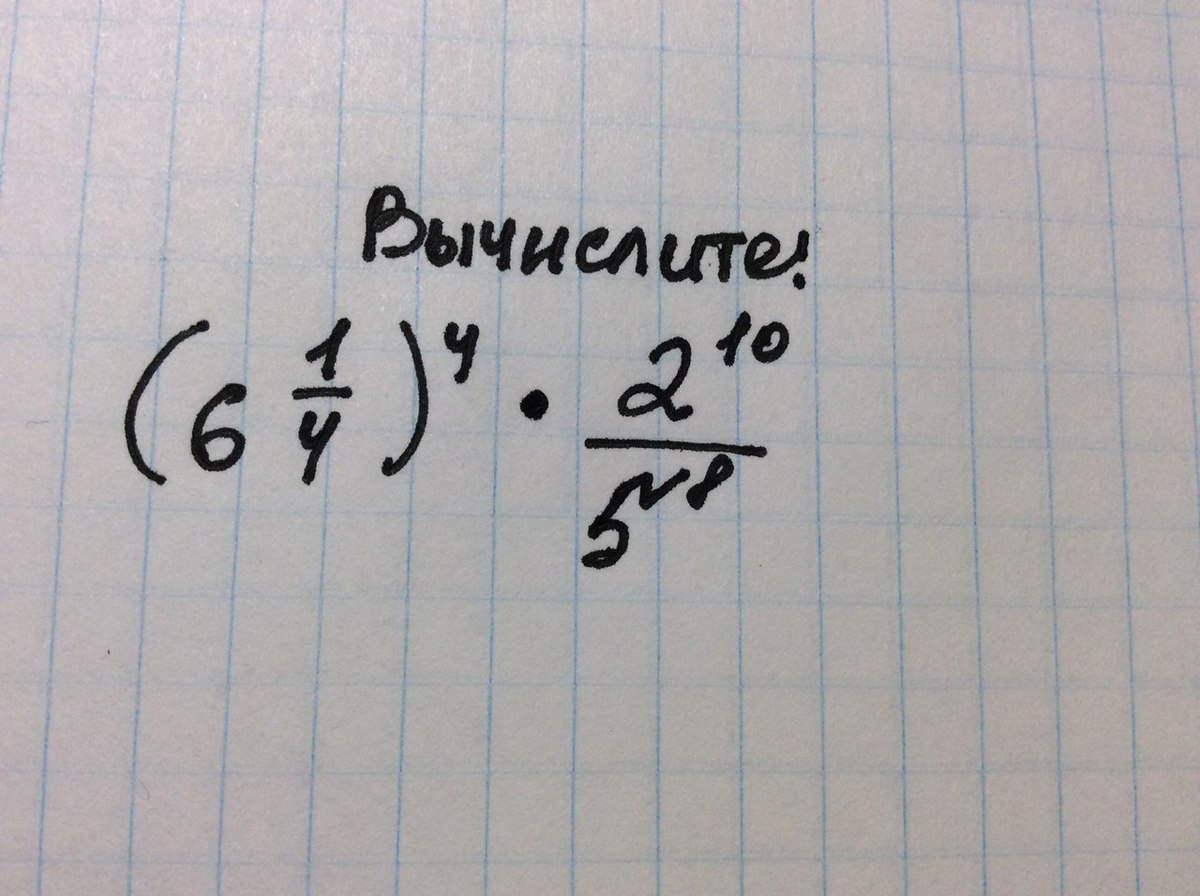 Вычислите!
(6 1/4)^4 · 2^10/5^8